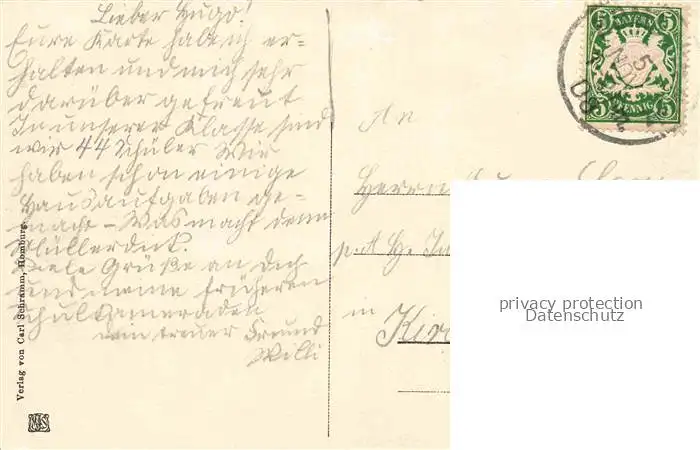 Lieber Hugo!
Eure Karte hab ich er-
halten und mich sehr
darüber gefreut
In unserer Klasse sind
wir 44 Schüler Wir
haben schon einige
Hausaufgaben ge-
macht – Was macht denn
Viele Grüße an Dich
und meine früheren
Schulkameraden
Dein treuer Freund
Willi
Verlag von Carl Schramm, Homburg.
5 BAYERN 5
5 PFENNIG 5
5
NOV
An
Herrn
p. A H.
in
Kir
privacy protection
Datenschutz